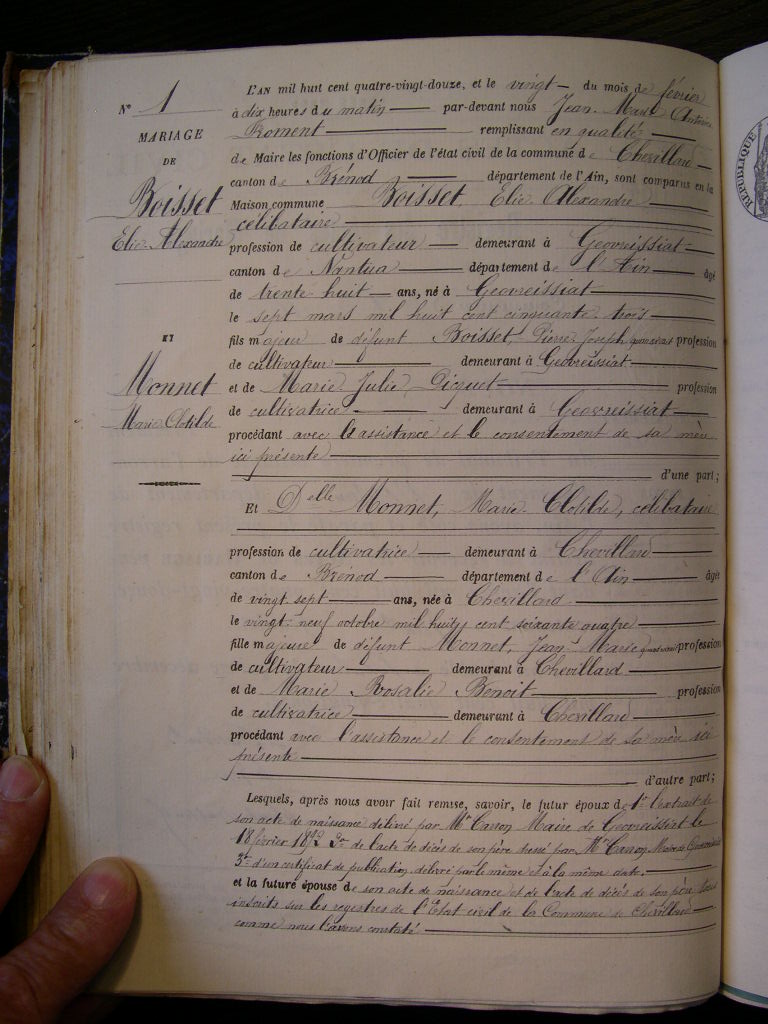 N° 1
MARIAGE
DE
Boisset
Elie Alexandre
ET
Monnet
Marie Clotilde
L'AN mil huit cent quatre-vingt-douze, et le vingt du mois de février
à dix heures du matin par-devant nous Jean Marie Antoine
Froment remplissant en qualité
de Maire les fonctions d'Officier de l'état civil de la commune de Chevillard
canton de Brénod département de l'Ain, sont comparus en la
Maison commune Boisset Elie Alexandre
célibataire
profession de cultivateur demeurant à Geovreissiat
canton de Nantua département de l'Ain âgé
de trente huit ans, né à Geovreissiat
le sept mars mil huit cent cinquante trois
fils majeur de défunt Boisset, Pierre Joseph, profession
de cultivateur demeurant à Geovreissiat
et de Marie Julie Piquet profession
de cultivatrice demeurant à Geovreissiat
procédant avec l'assistance et le consentement de sa mère
ici présente
d'une part;
Et Delle Monnet, Marie Clotilde, célibataire
profession de cultivatrice demeurant à Chevillard
canton de Brénod département de l'Ain âgée
de vingt sept ans, née à Chevillard
le vingt neuf octobre mil huit cent soixante quatre
fille majeure de défunt Monnet, Jean Marie profession
de cultivateur demeurant à Chevillard
et de Marie Rosalie Benoit profession
de cultivatrice demeurant à Chevillard
procédant avec l'assistance et le consentement de sa mère ici
présente
d'autre part;
Lesquels, après nous avoir fait remise, savoir, le futur époux de 1° l'extrait de
son acte de naissance délivré par Mr Carron Maire de Geovreissiat le
18 février 1892 2° de l'acte de décès de son père par Mr Carron Maire de Geovreissiat
3° d'un certificat de publication délivré par le même et à la même date,
et la future épouse de son acte de naissance et de l'acte de décès de son père tous
inscrits sur les registres de l'Etat civil de la Commune de Chevillard
comme nous l'avons constaté
RÉPUBLIQUE